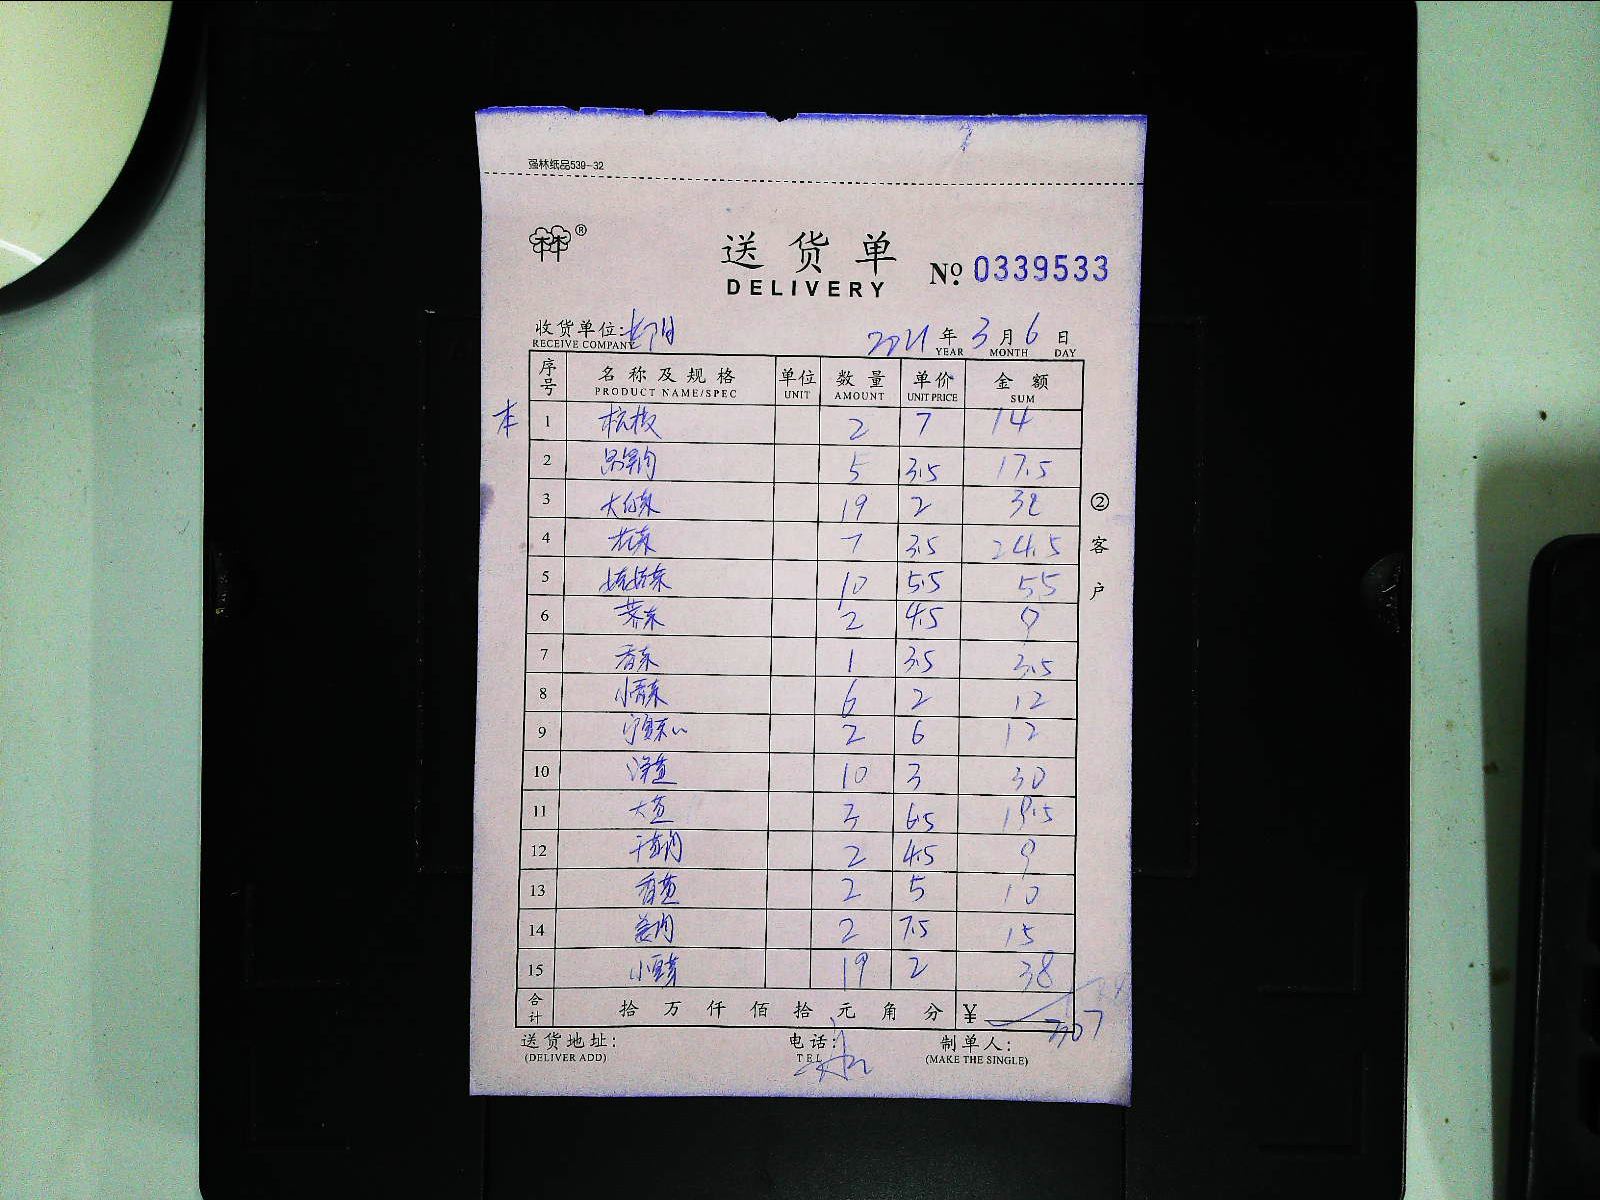 强林纸品539-32
林®
送货单 № 0339533
DELIVERY
收货单位: 2021年3月6日
RECEIVE COMPANY YEAR MONTH DAY
序号 名称及规格 单位 数量 单价 金额
PRODUCT NAME/SPEC UNIT AMOUNT UNIT PRICE SUM
本 1 杭椒 2 7 14
2 5 3.5 17.5
3 大白菜 19 2 38
4 花菜 7 3.5 24.5
5 娃娃菜 10 5.5 55
6 荠菜 2 4.5 9
7 香菜 1 3.5 3.5
8 小青菜 6 2 12
9 2 6 12
10 洋芋 10 3 30
11 3 6.5 19.5
12 2 4.5 9
13 2 5 10
14 姜肉 2 7.5 15
15 小豆芽 19 2 38
合计 拾万仟佰拾元角分 ¥ 307
送货地址: 电话: 制单人:
(DELIVER ADD) TEL (MAKE THE SINGLE)
②客户